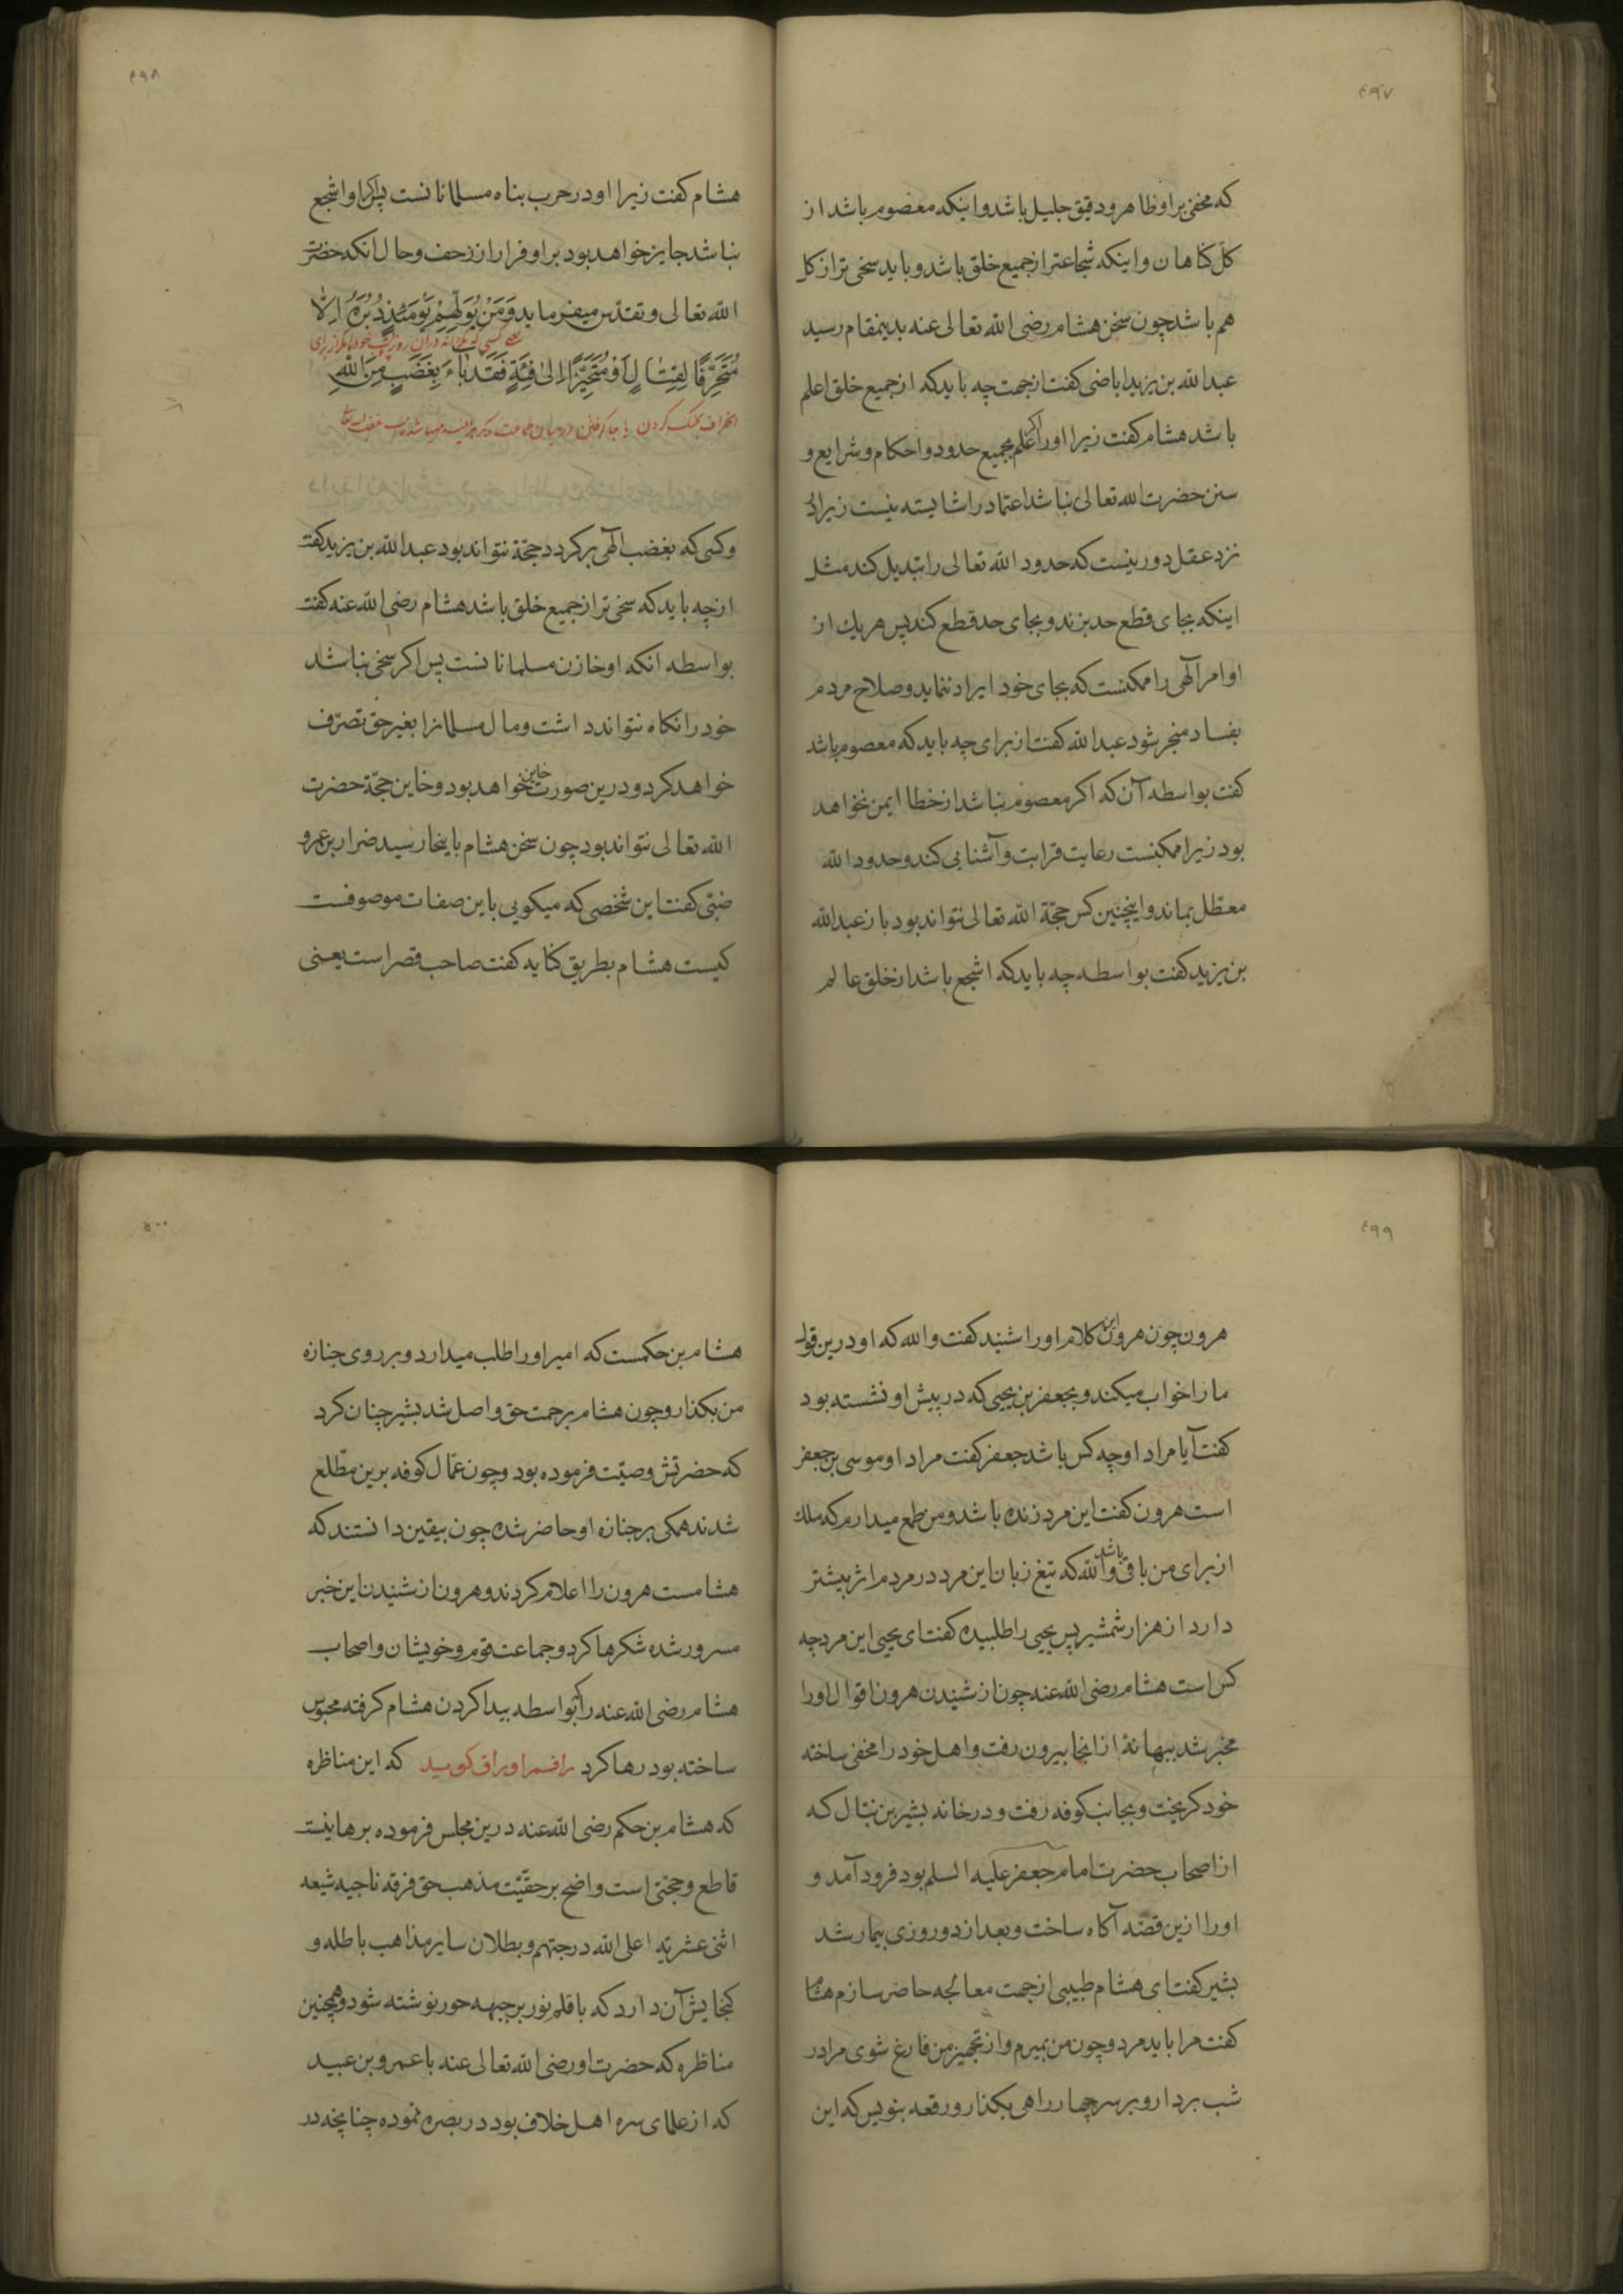 ٤٩٧
که مخفی بر او ظاهر و دقیق جلیل باشد و اینکه معصوم باشد از
کلّ کناهان و اینکه شجاعتر از جمیع خلق باشد و باید سخی تر از کل
هم باشد چون سخن هشام رضی الله تعالی عنه بدینمقام رسید
عبدالله بن یزید اباضی کفت از جهت چه باید که از جمیع خلق اعلم
باشد هشام کفت زیرا اورا اکر علم بجمیع حدود و احکام و شرایع و
سنن حضرت الله تعالی نباشد اعتماد را شایسته نیست زیرا که
نزد عقل دور نیست که حدود الله تعالی را تبدیل کند مثل
اینکه بجای قطع حد بزند و بجای حد قطع کند پس هر یك از
اوامر الٓهی را ممکنست که بجای خود ایراد ننماید و صلاح مردم
بفساد منجر شود عبدالله کفت از برای چه باید که معصوم باشد
کفت بواسطه آن که اکر معصوم نباشد از خطا ایمن نخواهد
بود زیرا ممکنست رعایت قرابت و آشنایی کند و حدود الله
معطّل بماند و اینچنین کس حجّة الله تعالی نتواند بود باز عبدالله
بن یزید کفت بواسطه چه باید که اشجع باشد از خلق عالم
٤٩٨
هشام کفت زیرا او در حرب پناه مسلمانانست پس اکر او اشجع
نباشد جایز خواهد بود بر او فرار از زحف و حال انکه حضرت
الله تعالی و تقدّس میفرماید وَمَنْ يُوَلِّهِمْ يَوْمَئِذٍ دُبُرَهُ إِلَّا
مُتَحَرِّفًا لِقِتَالٍ أَوْ مُتَحَيِّزًا إِلىٰ فِئَةٍ فَقَدْ بَاءَ بِغَضَبٍ مِنَ اللهِ
وکسی که بغضب الٓهی برکردد حجّة نتواند بود عبدالله بن یزید کفت
از چه باید که سخی تر از جمیع خلق باشد هشام رضی الله عنه کفت
بواسطه انکه او خازن مسلمانانست پس اکر سخی نباشد
خود را نکاه نتواند داشت و مال مسلمانرا بغیر حق تصرّف
خواهد کرد و درین صورت خاین خواهد بود و خاین حجّة حضرت
الله تعالی نتواند بود چون سخن هشام باینجا رسید ضرار بن عمرو
ضبّی کفت این شخصی که میکویی باین صفات موصوفست
کیست هشام بطریق کنایه کفت صاحب قصر است یعنی
٤٩٩
هرون چون هرون این کلام اورا شنید کفت والله که او درین قول
مارا خواب میکند و بجعفر بن یحیی که در پیش او نشسته بود
کفت آیا مراد او چه کس باشد جعفر کفت مراد او موسی بن جعفر
است هرون کفت این مرد زنده باشد و من طمع میدارم که ملك
از برای من باقی باشد والله که تیغ زبان این مرد در مردم اثر بیشتر
دارد از هزار شمشیر پس یحیی را طلبیده کفت ای یحیی این مرد چه
کس است هشام رضی الله عنه چون از شنیدن هرون اقوال اورا
مخبر شد ببهانهٔ از انجا بیرون رفت و اهل خود را مخفی ساخته
خود کریخت و بجانب کوفه رفت و در خانه بشیر بن نبّال که
از اصحاب حضرت امام جعفر علیه السلم بود فرود آمد و
اورا ازین قصّه آکاه ساخت و بعد از دو روزی بیمار شد
بشیر کفت ای هشام طبیبی از جهت معالجه حاضر سازم هشام
کفت مرا باید مرد و چون من بمیرم و از تجهیز من فارغ شوی مرا در
شب بردار و بر سر چهار راهی بکذار و رقعه بنویس که این
٥٠٠
هشام بن حکمست که امیر اورا طلب میدارد و بر روی جنازه
من بکذار و چون هشام برحمت حق واصل شد بشیر چنان کرد
که حضرتش وصیّت فرموده بود و چون عمّال کوفه برین مطّلع
شدند همکی بر جنازه او حاضر شده چون بیقین دانستند که
هشامست هرون را اعلام کردند و هرون از شنیدن این خبر
مسرور شده شکرها کرد و جماعت قوم و خویشان و اصحاب
هشام رضی الله عنه را که بواسطه پیدا کردن هشام کرفته محبوس
ساخته بود رها کرد راقم اوراق کوید که این مناظره
که هشام بن حکم رضی الله عنه درین مجلس فرموده برهانیست
قاطع و حجّتی است واضح بر حقیّت مذهب حق فرقه ناجیه شیعه
اثنی عشریّه اعلی الله درجتهم و بطلان سایر مذاهب باطله و
کنجایش آن دارد که با قلم نور بر جبهه حور نوشته شود و همچنین
مناظره که حضرت او رضی الله تعالی عنه با عمرو بن عبید
که از علمای سره اهل خلاف بود در بصره نموده چنانچه در